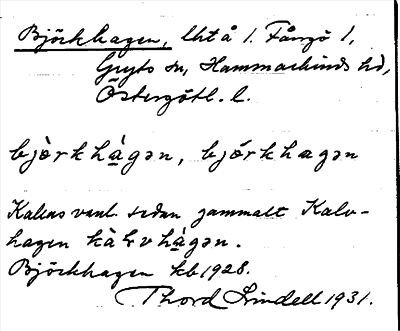 Björkhagen, lht å 1. Fångö 1,
Gryts sn, Hammarkinds hd,
Östergötl. l.
bjòrkhàgən, bjórkhagən
Kallas vanl. sedan gammalt Kalv-
hagen kàlvhàgən.
Björkhagen kb 1928.
Thord Lindell 1931.